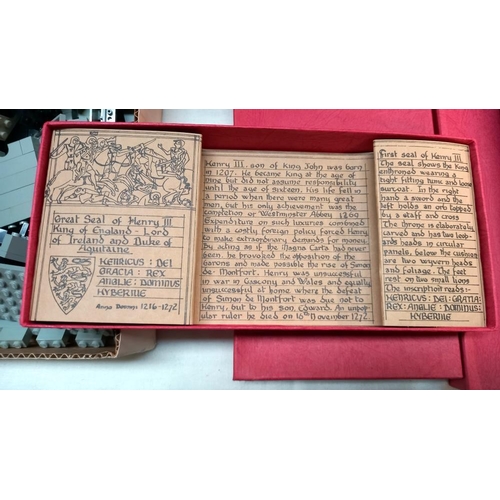 Great Seal of Henry III
King of England - Lord
of Ireland and Duke of
Aquitaine.
HENRICUS : DEI
GRACIA : REX
ANGLIE : DOMINUS
HYBERNIE
Anno Domini 1216-1272
Henry III. son of King John was born
in 1207. He became King at the age of
nine but did not assume responsibility
until the age of sixteen. his life fell in
a period when there were many great
men, but his only achievement was the
completion of Westminster Abbey 1269
Expenditure on such luxuries combined
with a costly foreign policy forced Henry
to make extraordinary demands for money.
By acting as if the Magna Carta had never
been, he provoked the opposition of the
barons and made possible the rise of Simon
de-Montfort. Henry was unsuccessful
in war in Gascony and Wales and equally
unsuccessful at home where the defeat
of Simon de Montfort was due not to
Henry, but to his son, Edward. An unpop-
ular ruler he died on 16th November 1272
First seal of Henry III
The seal shows the King
enthroned wearing a
tight fitting tunic and loose
surcoat. In the right
hand a sword and the
left holds an orb topped
by a staff and cross
The throne is elaborately
carved and has two leop-
ards heads in circular
panels, below the cushion
are two wyvern heads
and foliage. The feet
rest on two small lions
The inscription reads:-
HENRICUS: DEI: GRATIA:
REX: ANGLIE: DOMINUS:
HYBERNIE